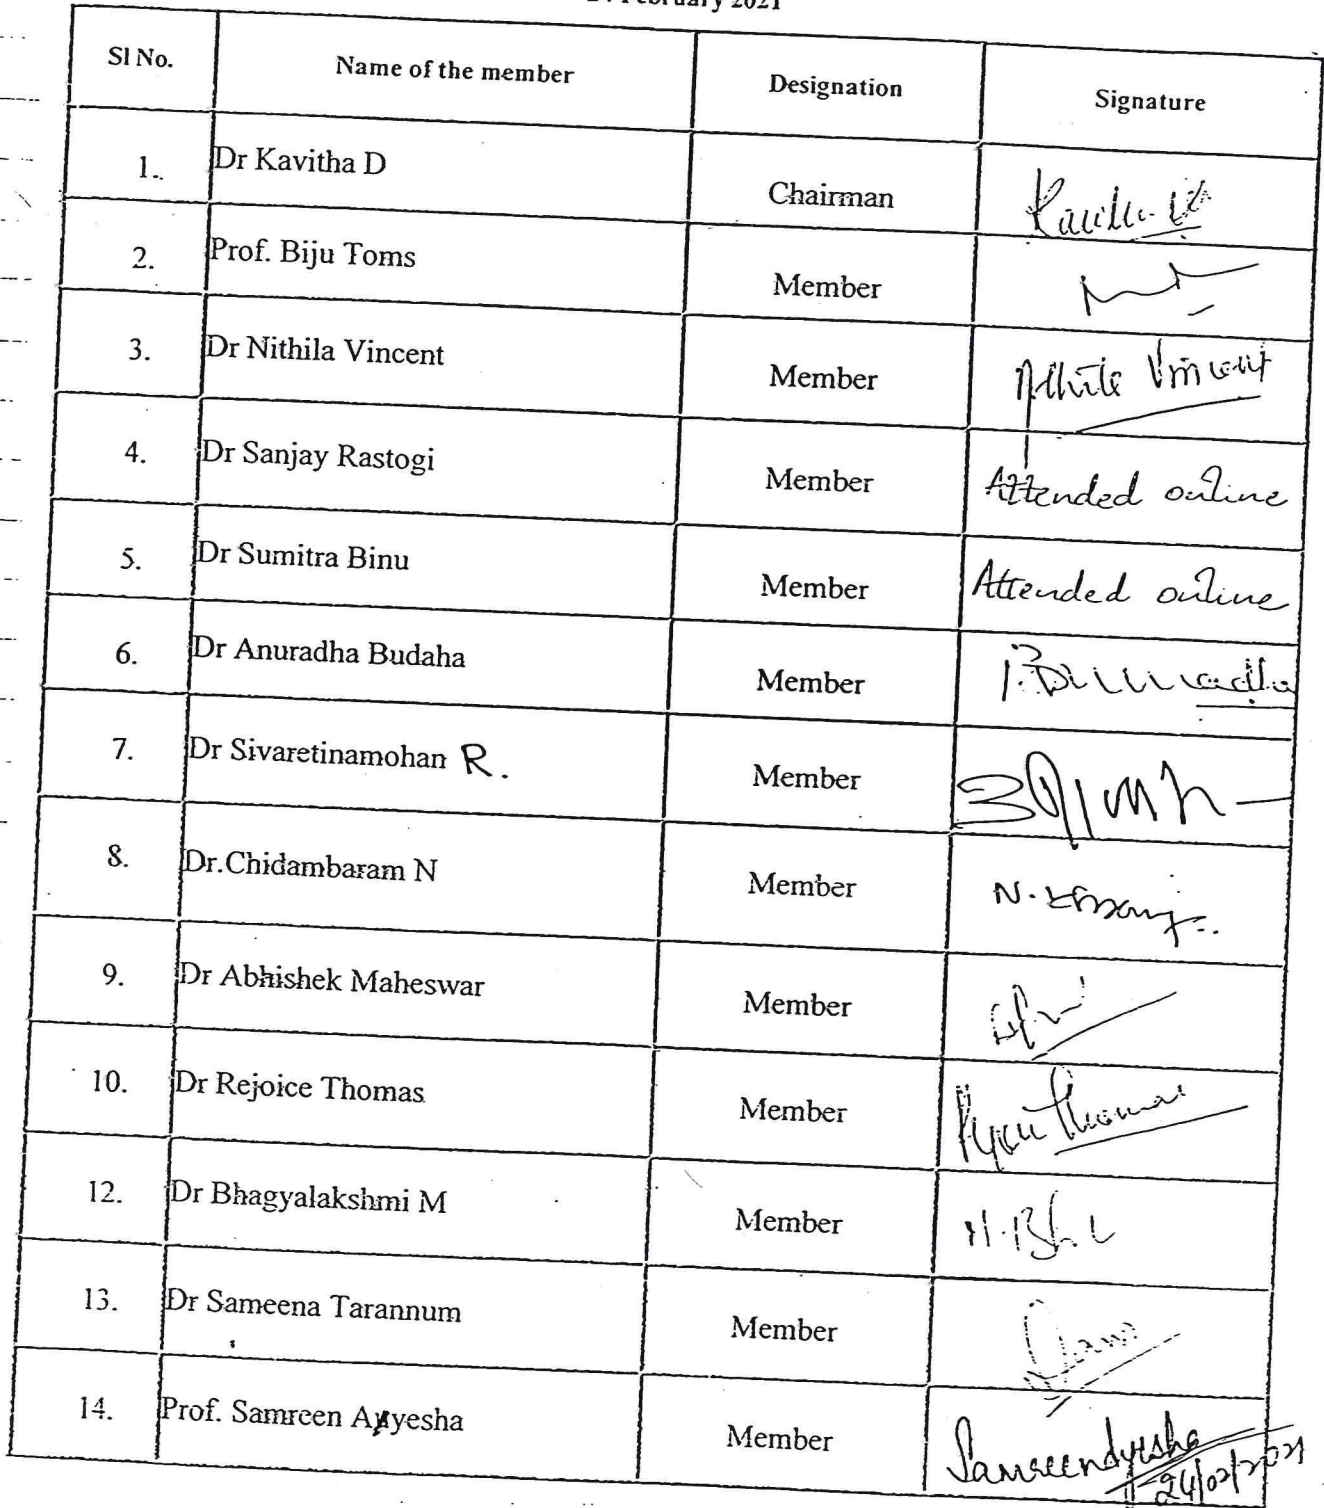 February 2021
Sl No. Name of the member Designation Signature
1. Dr Kavitha D Chairman
2. Prof. Biju Toms Member
3. Dr Nithila Vincent Member Nithila Vincent
4. Dr Sanjay Rastogi Member Attended online
5. Dr Sumitra Binu Member Attended online
6. Dr Anuradha Budaha Member
7. Dr Sivaretinamohan R. Member
8. Dr.Chidambaram N Member
9. Dr Abhishek Maheswar Member
10. Dr Rejoice Thomas Member Thomas
12. Dr Bhagyalakshmi M Member
13. Dr Sameena Tarannum Member
14. Prof. Samreen Ayyesha Member
24/02/2021